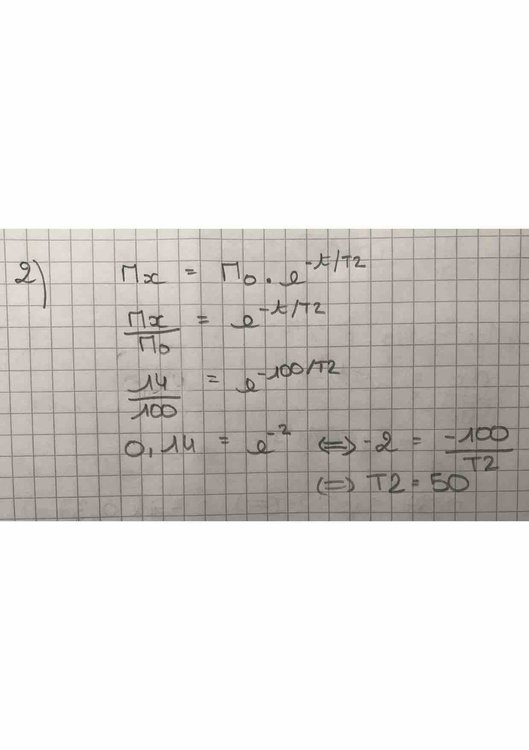 2) Mx = M0 . e^-t/T2
Mx/M0 = e^-t/T2
14/100 = e^-100/T2
0,14 = e^-2 <=> -2 = -100/T2
<=> T2 = 50